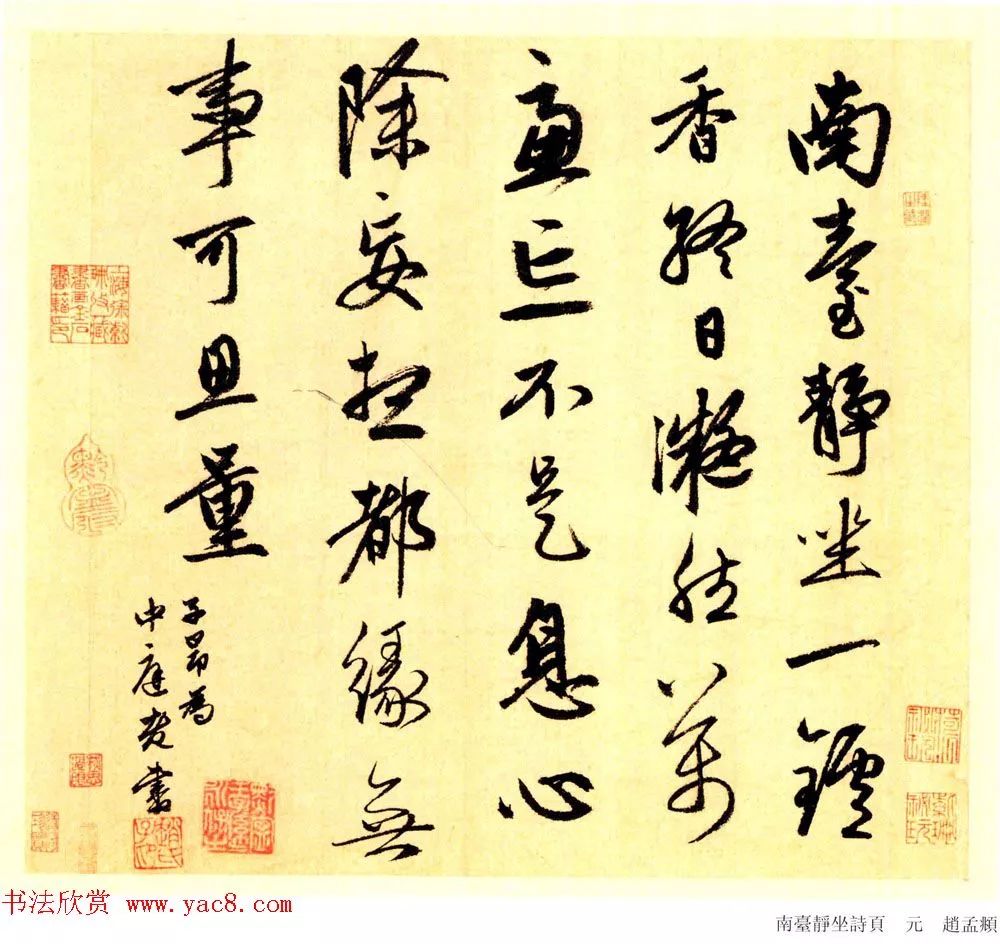 南臺靜坐一鑪
香終日凝然萬
慮亡不是息心
除妄想都緣無
事可思量
子昂為
中庭老書
趙氏子昂
书法欣赏 www.yac8.com
南臺靜坐詩頁　元　趙孟頫